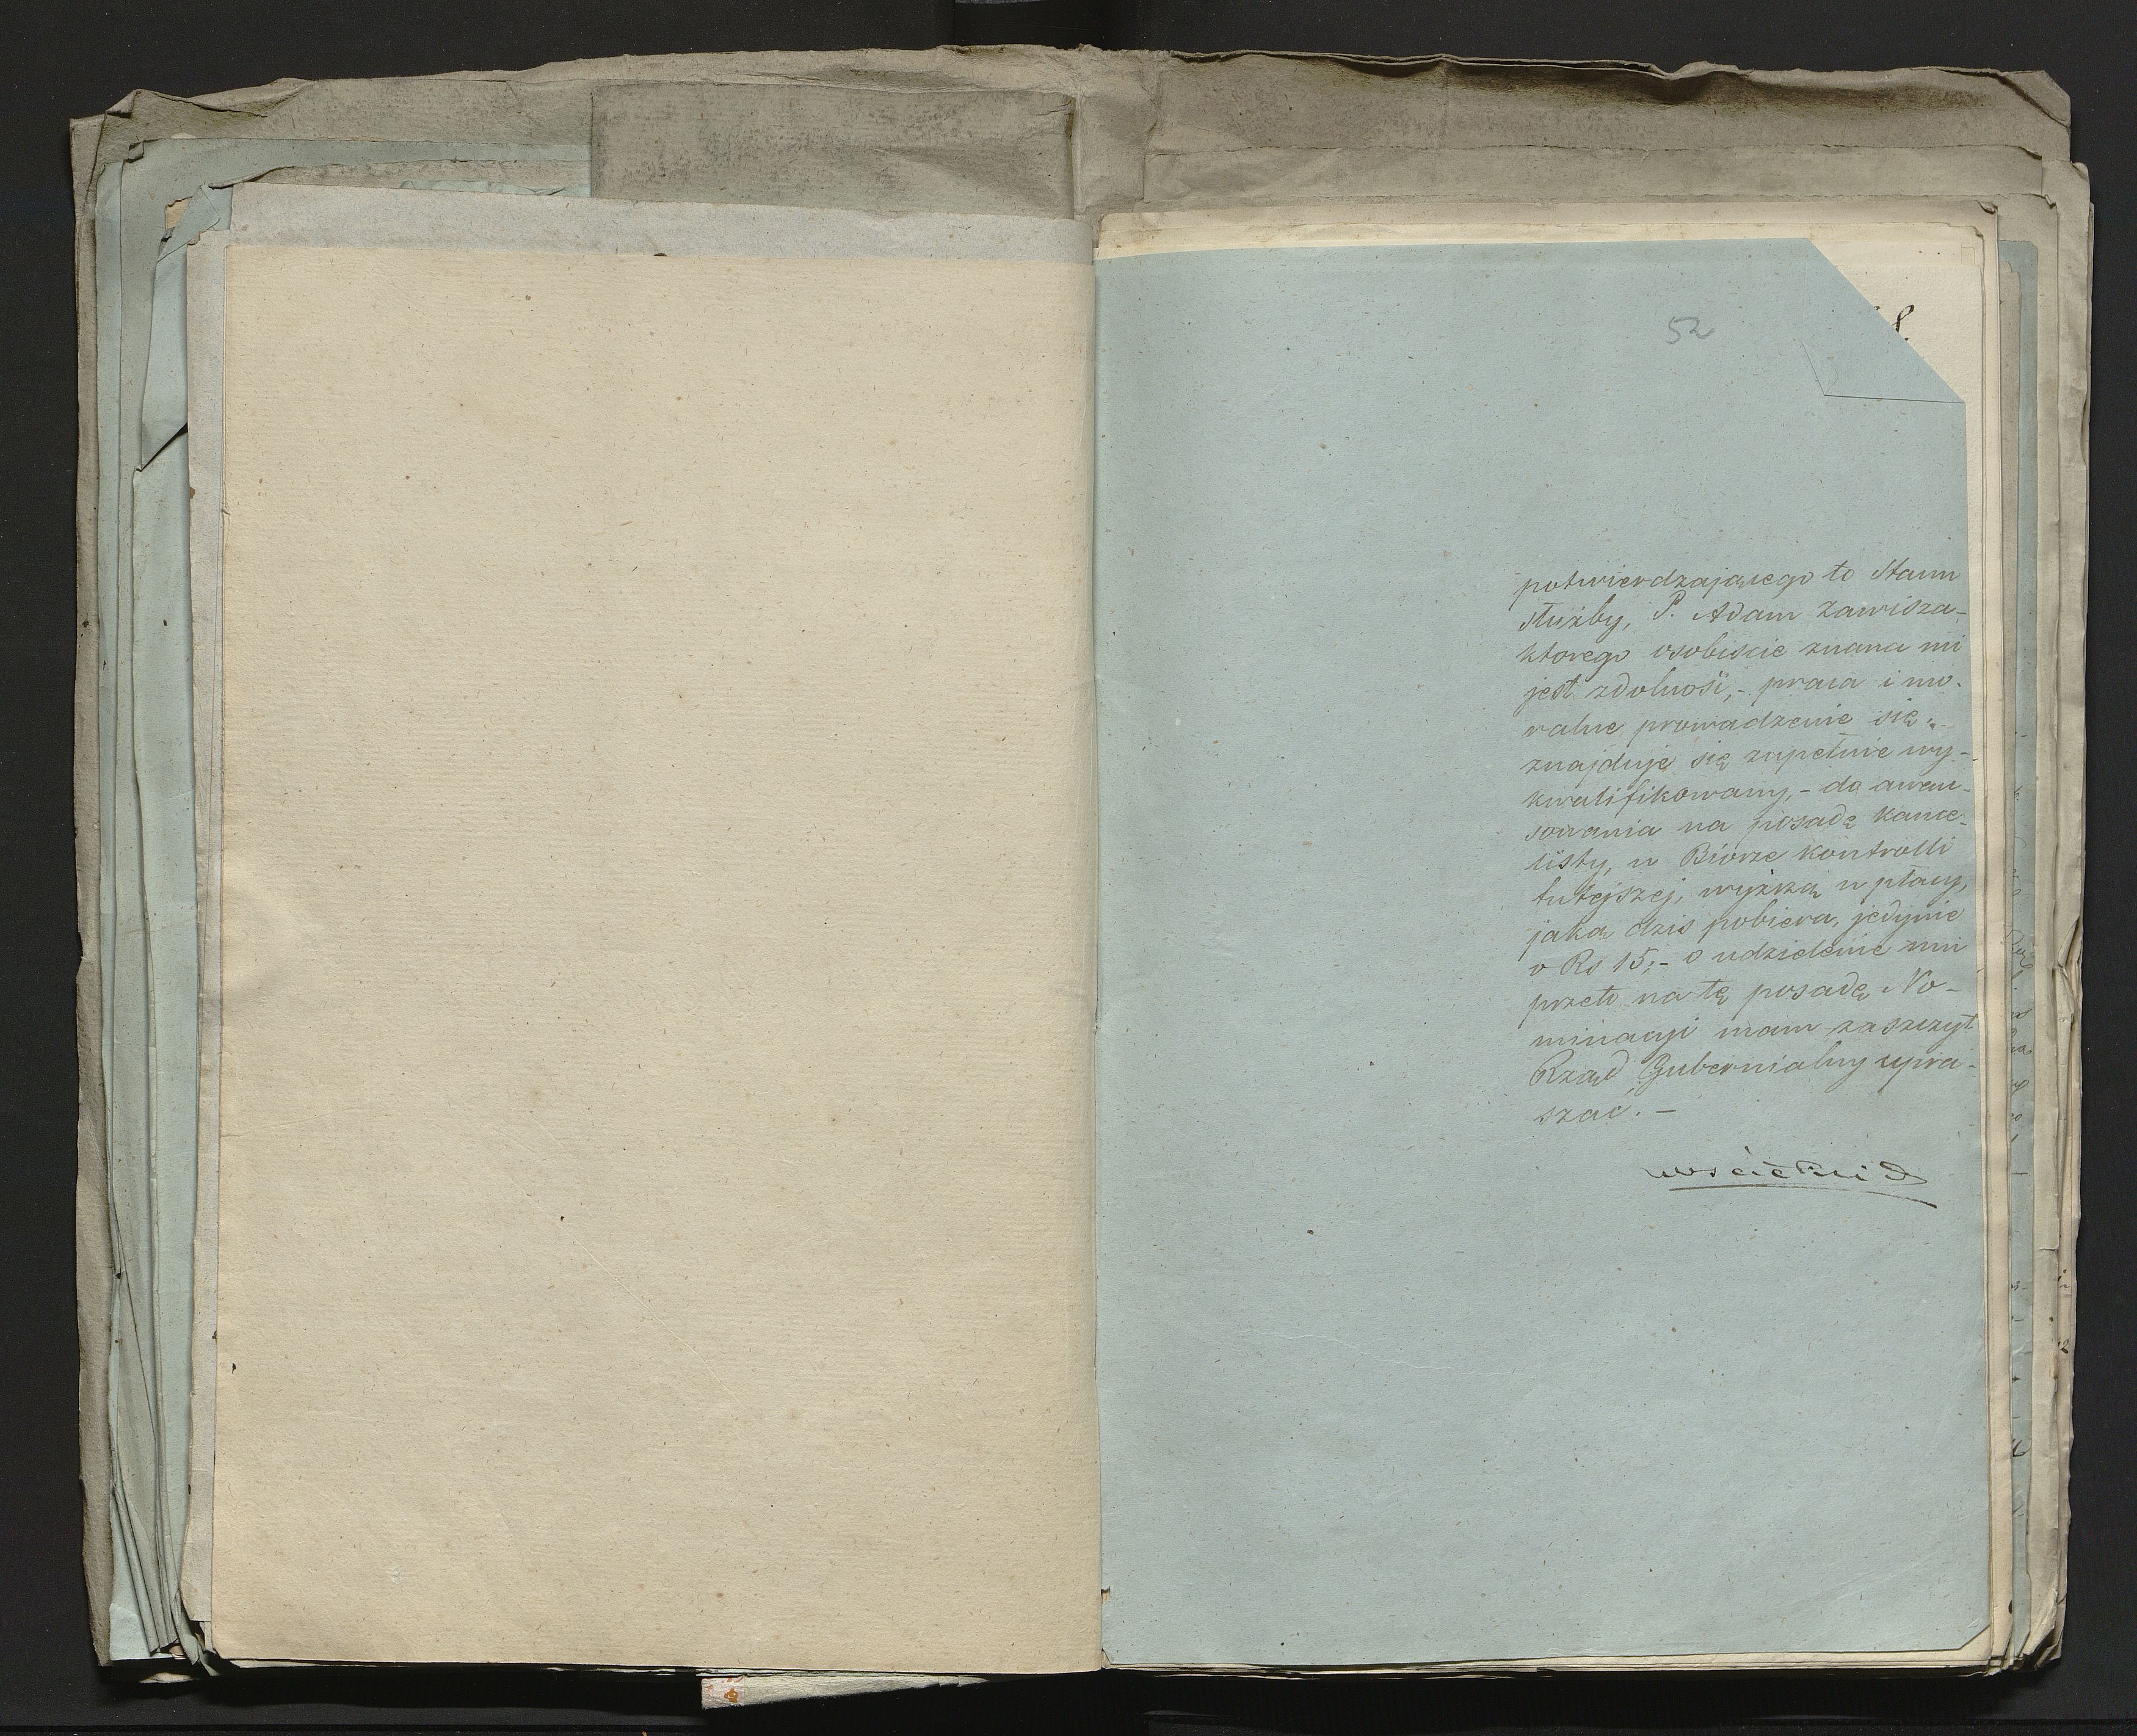 52
potwierdzającego to Stann
służby, P. Adam Zawisza
ktorego osobiscie znana mi
jest zdolność, - praca i mo-
ralne prowadzenie się,
znajduje się zupełnie wy-
kwalifikowany, - do awan-
sowania na posadę kance-
listy, w Biórze Kontrolli
tutejszej, wyższą w płacy,
jaką dzis pobiera, jedynie
o Rs 15; - O udzielenie mu
przeto na tę posadę No-
minacyi mam zaszczyt
Rząd Gubernialny upra-
szać. -